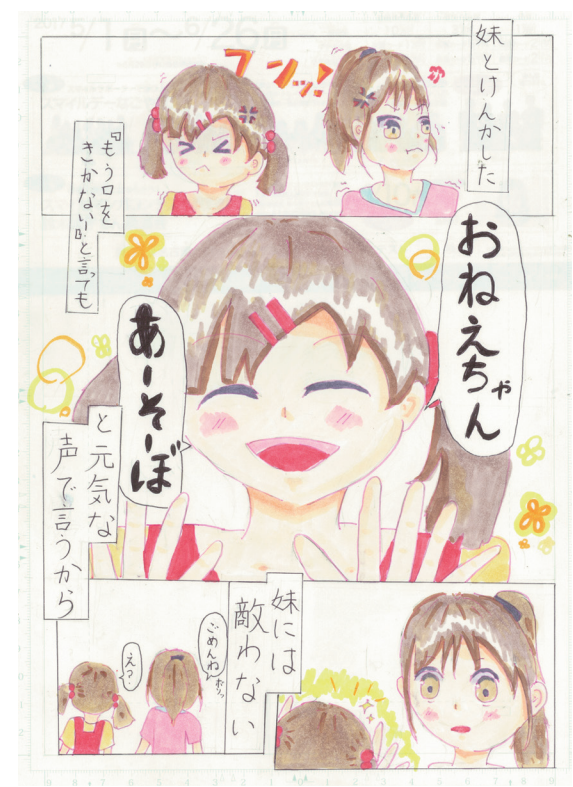 妹とけんかした
フンッ!
『もう口を
きかない!』と言っても
おねえちゃん
あーそーぼ
と元気な
声で言うから
妹には
敵わない
ごめんね
ボソッ
え?